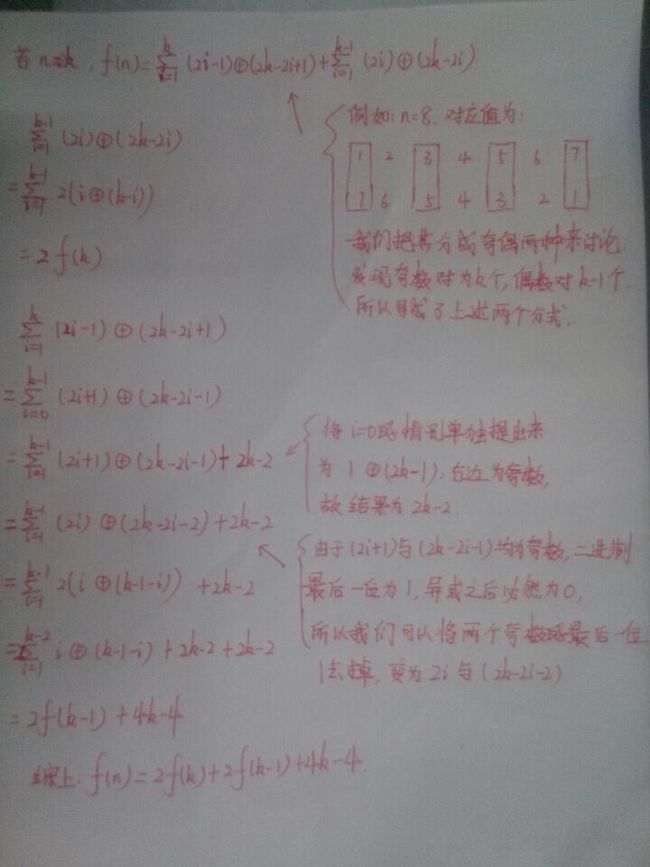 若n=2k, f(n)=∑_{i=1}^{k}(2i-1)⊕(2k-2i+1)+∑_{i=1}^{k-1}(2i)⊕(2k-2i)
∑_{i=1}^{k-1}(2i)⊕(2k-2i)
=∑_{i=1}^{k-1}2(i⊕(k-i))
=2f(k)
例如:n=8,对应值为:
1 2 3 4 5 6 7
7 6 5 4 3 2 1
我们把其分成奇偶两种来讨论.
发现奇数对为k个,偶数对k-1个.
所以写成了上述两个分式.
∑_{i=1}^{k}(2i-1)⊕(2k-2i+1)
=∑_{i=0}^{k-1}(2i+1)⊕(2k-2i-1)
=∑_{i=1}^{k-1}(2i+1)⊕(2k-2i-1)+2k-2
=∑_{i=1}^{k-1}(2i)⊕(2k-2i-2)+2k-2
=∑_{i=1}^{k-1}2(i⊕(k-1-i))+2k-2
=2∑_{i=1}^{k-2}i⊕(k-1-i)+2k-2+2k-2
=2f(k-1)+4k-4
将i=0的情况单独提出来
为1⊕(2k-1),右边为奇数,
故结果为2k-2.
由于(2i+1)与(2k-2i-1)均为奇数,二进制
最后一位为1,异或之后必然为0,
所以我们可以将两个奇数的最后一位
1去掉,变为2i与(2k-2i-2)
综上:f(n)=2f(k)+2f(k-1)+4k-4.